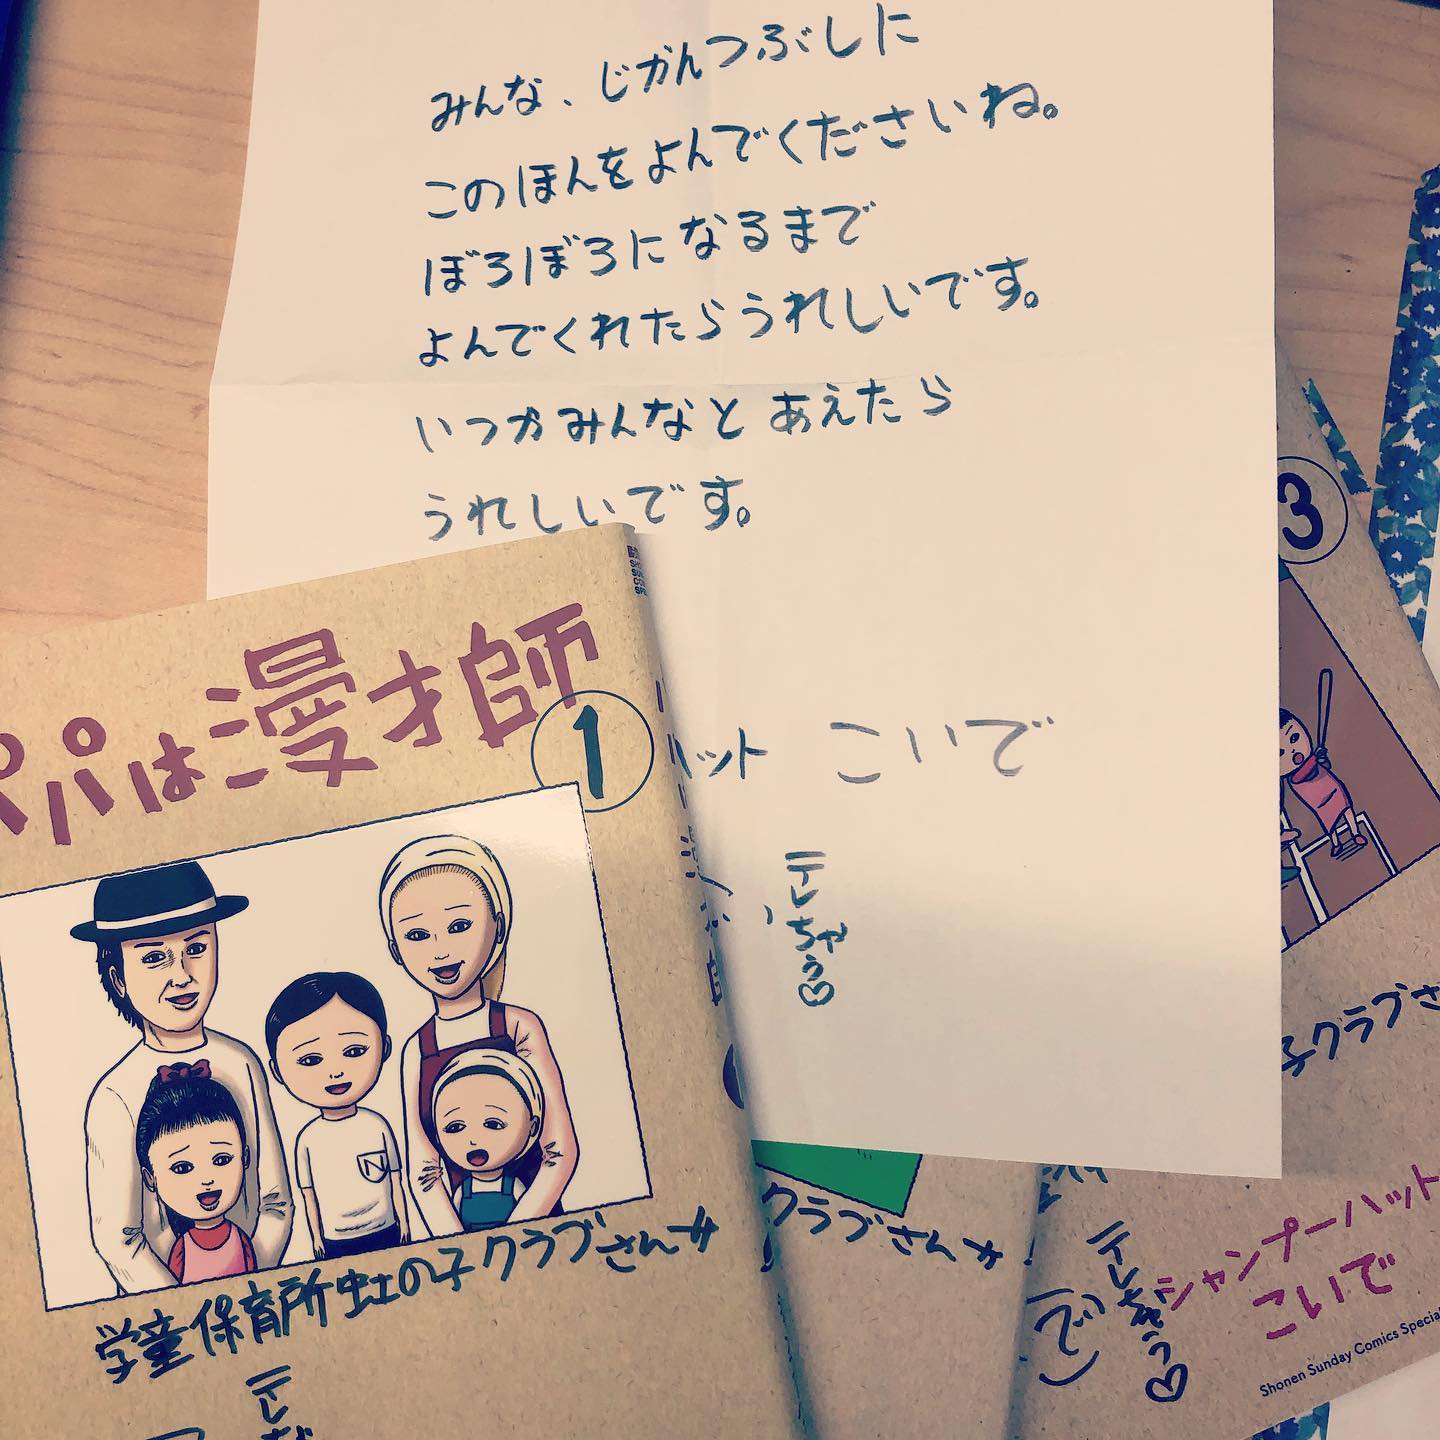 みんな、じかんつぶしに
このほんをよんでくださいね。
ぼろぼろになるまで
よんでくれたらうれしいです。
いつかみんなとあえたら
うれしいです。
ハット こいで
てれちゃう♡
パパは漫才師
1
N
学童保育所虹の子クラブさんへ
てれ
3
クラブさんへ
子クラブさ
シャンプーハット
こいで
てれちゃう♡
(で)
Shonen Sunday Comics Special